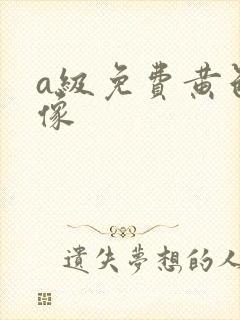 a級免費黄
像
遺失夢想的人